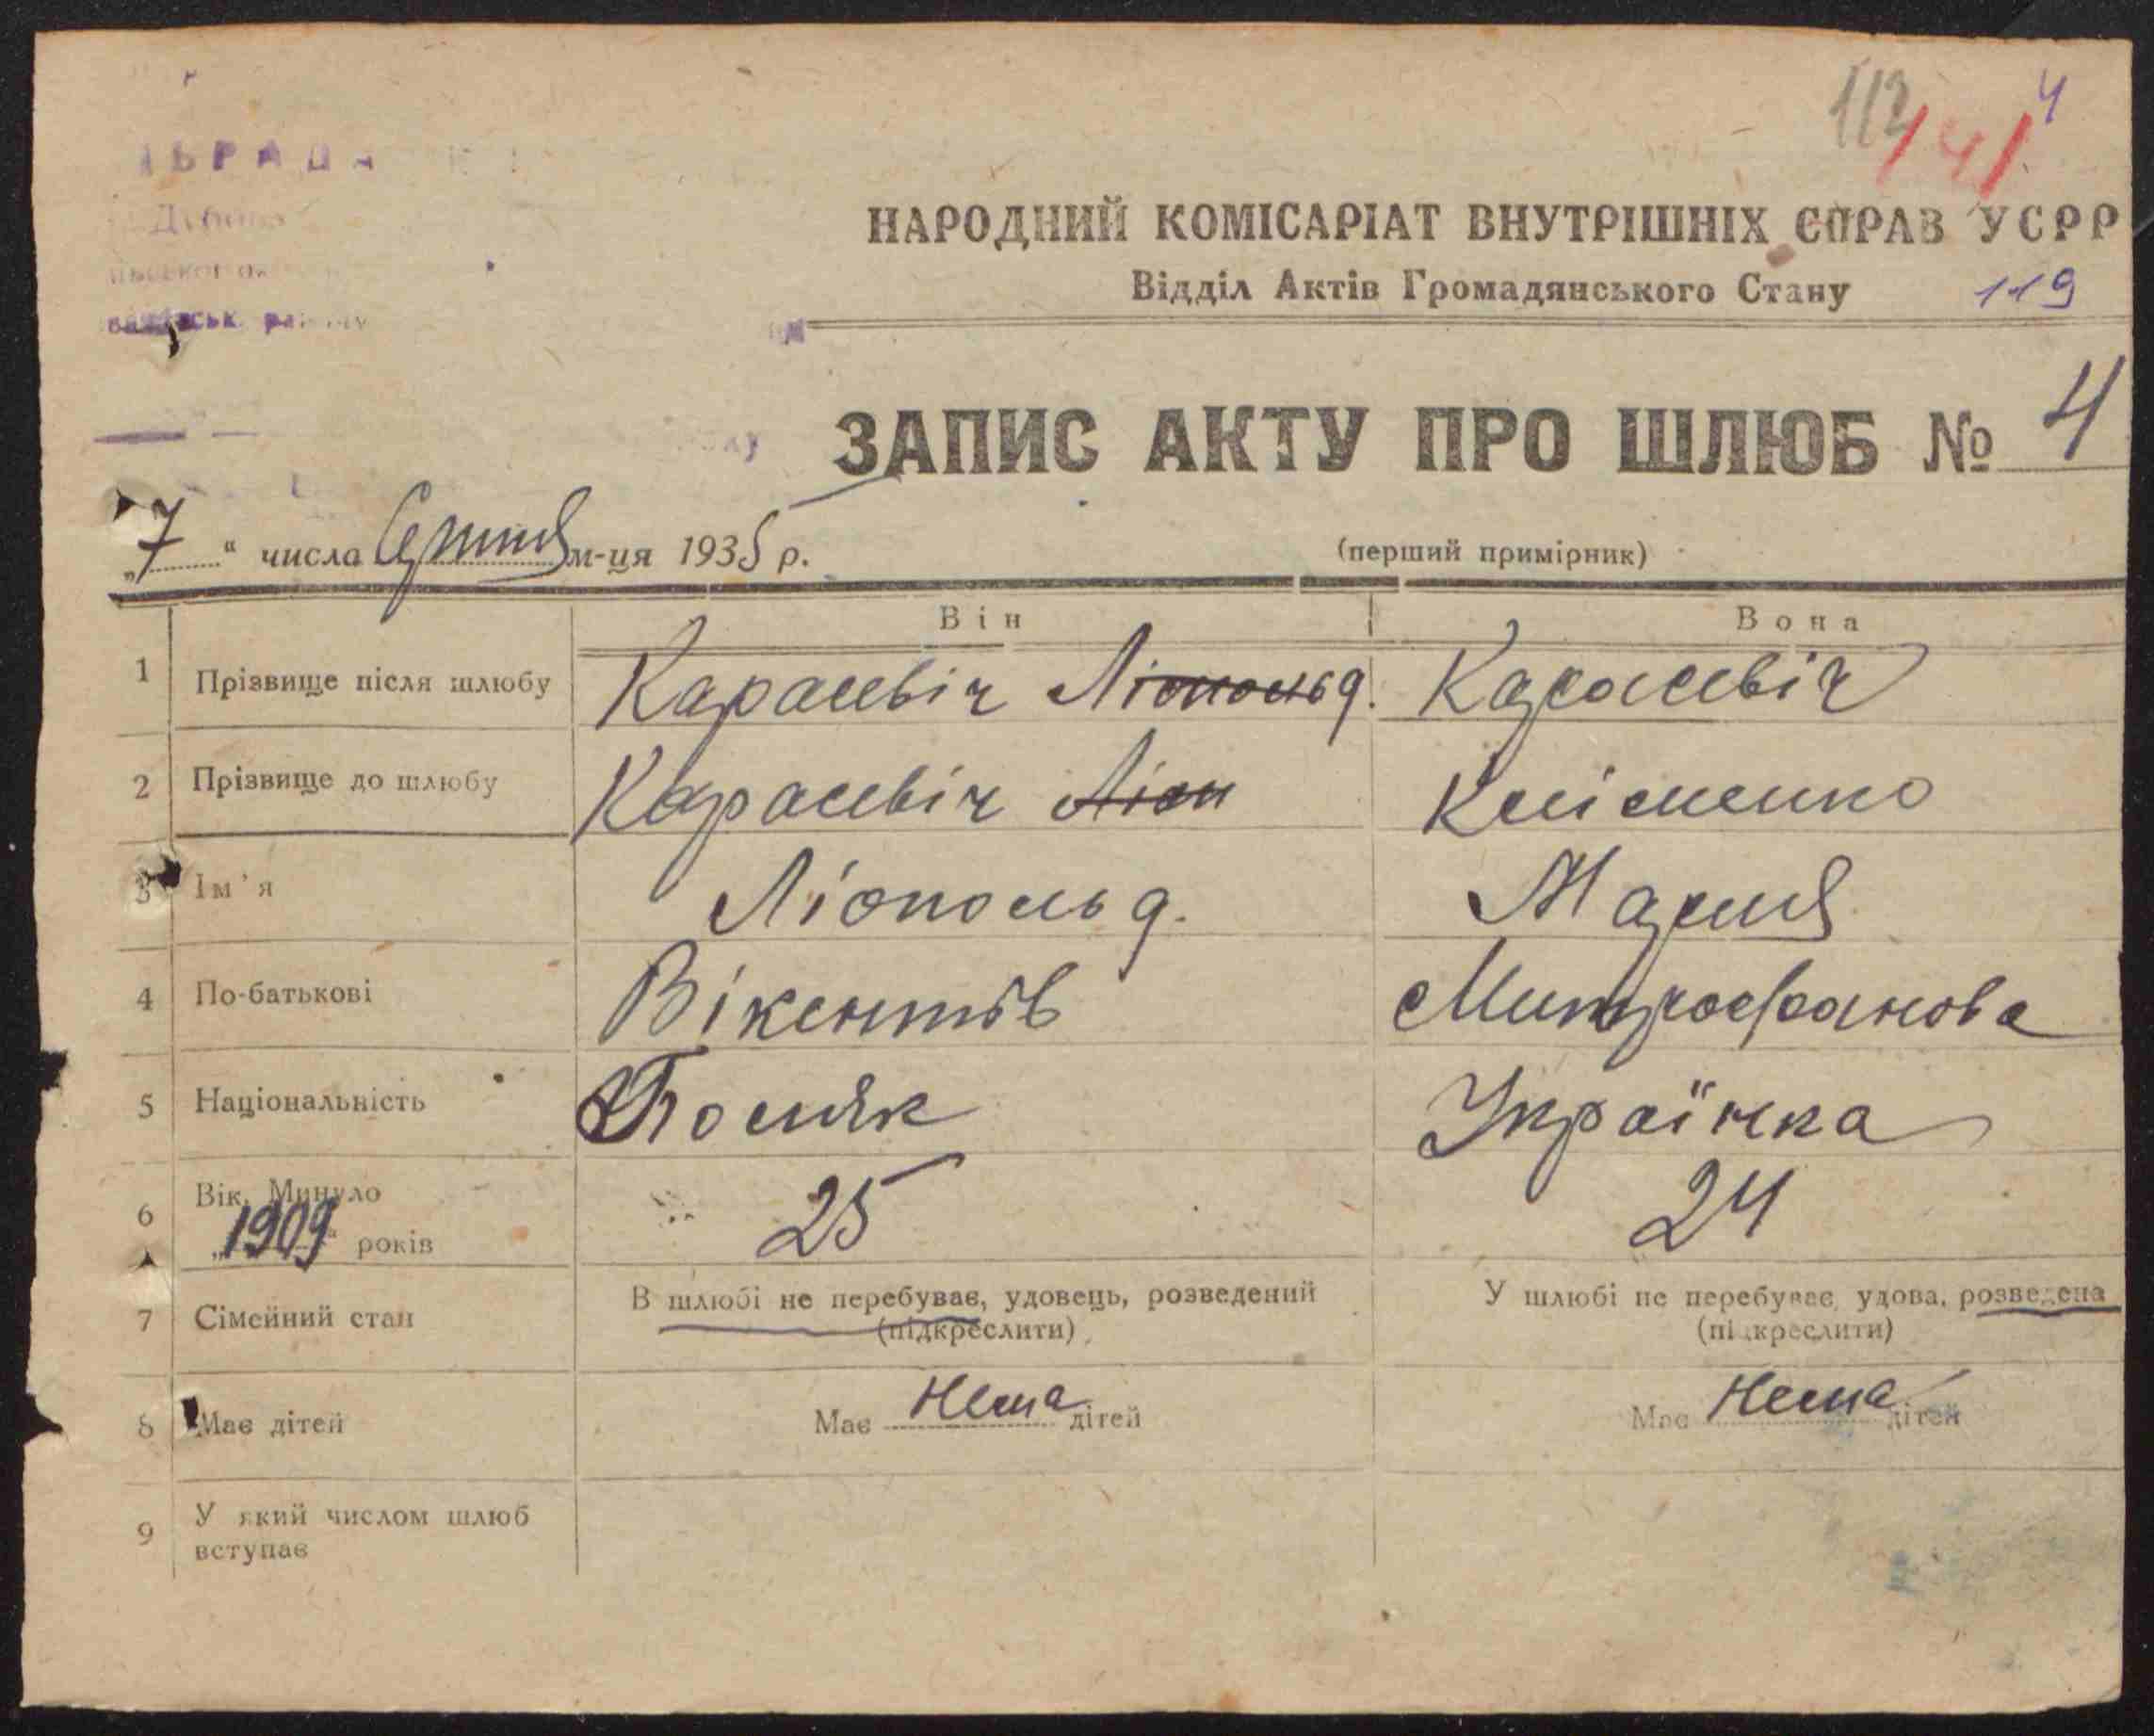 112 / 41. 4
НАРОДНИЙ КОМІСАРІАТ ВНУТРІШНІХ СПРАВ УСРР
Відділ Актів Громадянського Стану 119
ЗАПИС АКТУ ПРО ШЛЮБ № 4
„7“ числа м-ця 1935 р.
(перший примірник)
Він Вона
1 Прізвище після шлюбу Карасевіч Ліопольд. Карасевіч
2 Прізвище до шлюбу Карасевіч Ліоп Кліменко
3 Ім'я Ліопольд. Мария
4 По-батькові Вікентів Митрофанова
5 Національність Поляк Українка
6 Вік. Минуло „1909“ років 25 24
7 Сімейний стан В шлюбі не перебуває, удовець, розведений (підкреслити) У шлюбі не перебуває, удова, розведена (підкреслити)
8 Має дітей Має Нема дітей Має Нема дітей
9 У який числом шлюб вступає